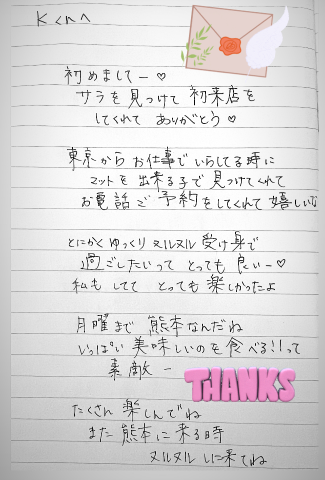 Kくんへ
初めましてー♡
サラを見つけて初来店を
してくれてありがとう♡
東京からお仕事でいらしてる時に
マットを出来る子で見つけてくれて
お電話でご予約をしてくれて嬉しいな
とにかくゆっくりヌルヌル受け身で
過ごしたいってとっても良いー♡
私もしててとっても楽しかったよ
月曜まで熊本なんだね
いっぱい美味しいのを食べる!!って
素敵ー
THANKS
たくさん楽しんでね
また熊本に来る時
ヌルヌルしに来てね